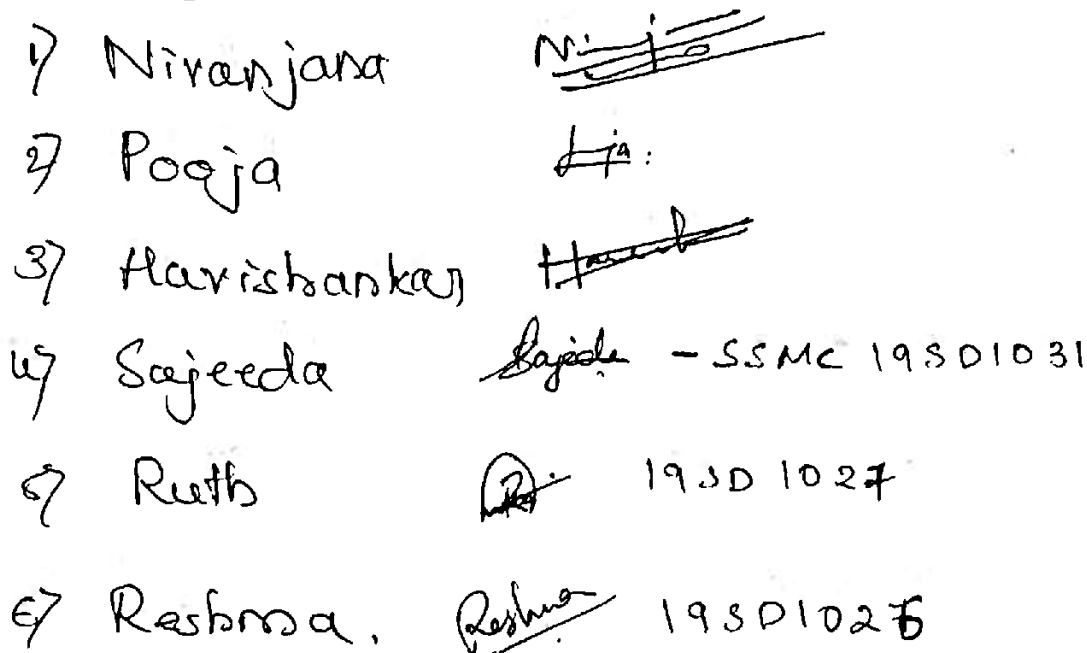 1) Niranjana
2) Pooja
3) Harishankar
4) Sajeeda Sajeeda - SSMC 19SD1031
5) Ruth 19SD 1027
6) Reshma. Reshma 19SD1026